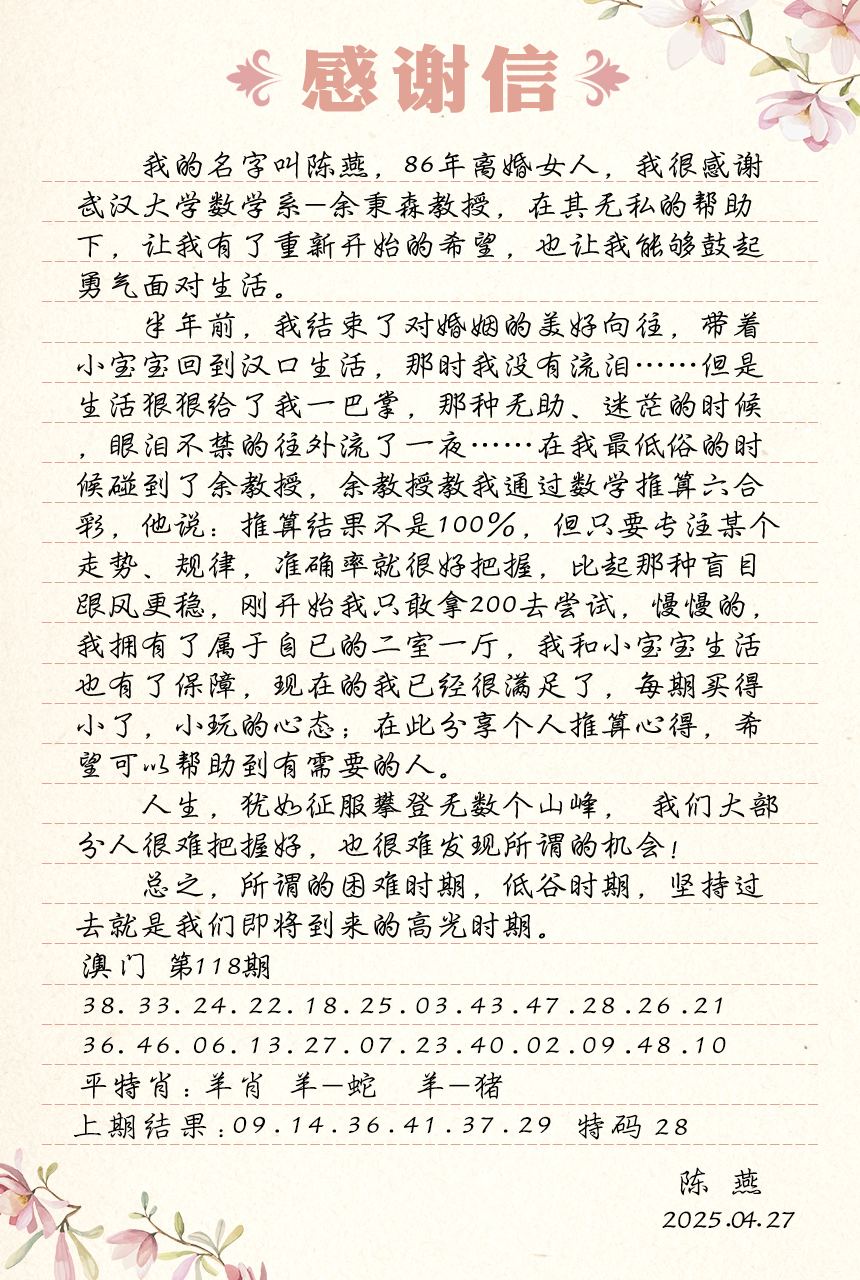 感谢信
我的名字叫陈燕，86年离婚女人，我很感谢
武汉大学数学系—余秉森教授，在其无私的帮助
下，让我有了重新开始的希望，也让我能够鼓起
勇气面对生活。
半年前，我结束了对婚姻的美好向往，带着
小宝宝回到汉口生活，那时我没有流泪……但是
生活狠狠给了我一巴掌，那种无助、迷茫的时候
，眼泪不禁的往外流了一夜……在我最低俗的时
候碰到了余教授，余教授教我通过数学推算六合
彩，他说：推算结果不是100%，但只要专注某个
走势、规律，准确率就很好把握，比起那种盲目
跟风更稳，刚开始我只敢拿200去尝试，慢慢的，
我拥有了属于自已的二室一厅，我和小宝宝生活
也有了保障，现在的我已经很满足了，每期买得
小了，小玩的心态；在此分享个人推算心得，希
望可以帮助到有需要的人。
人生，犹如征服攀登无数个山峰， 我们大部
分人很难把握好，也很难发现所谓的机会！
总之，所谓的困难时期，低谷时期，坚持过
去就是我们即将到来的高光时期。
澳门 第118期
38.33.24.22.18.25.03.43.47.28.26.21
36.46.06.13.27.07.23.40.02.09.48.10
平特肖：羊肖 羊—蛇 羊—猪
上期结果：09.14.36.41.37.29 特码 28
陈 燕
2025.04.27